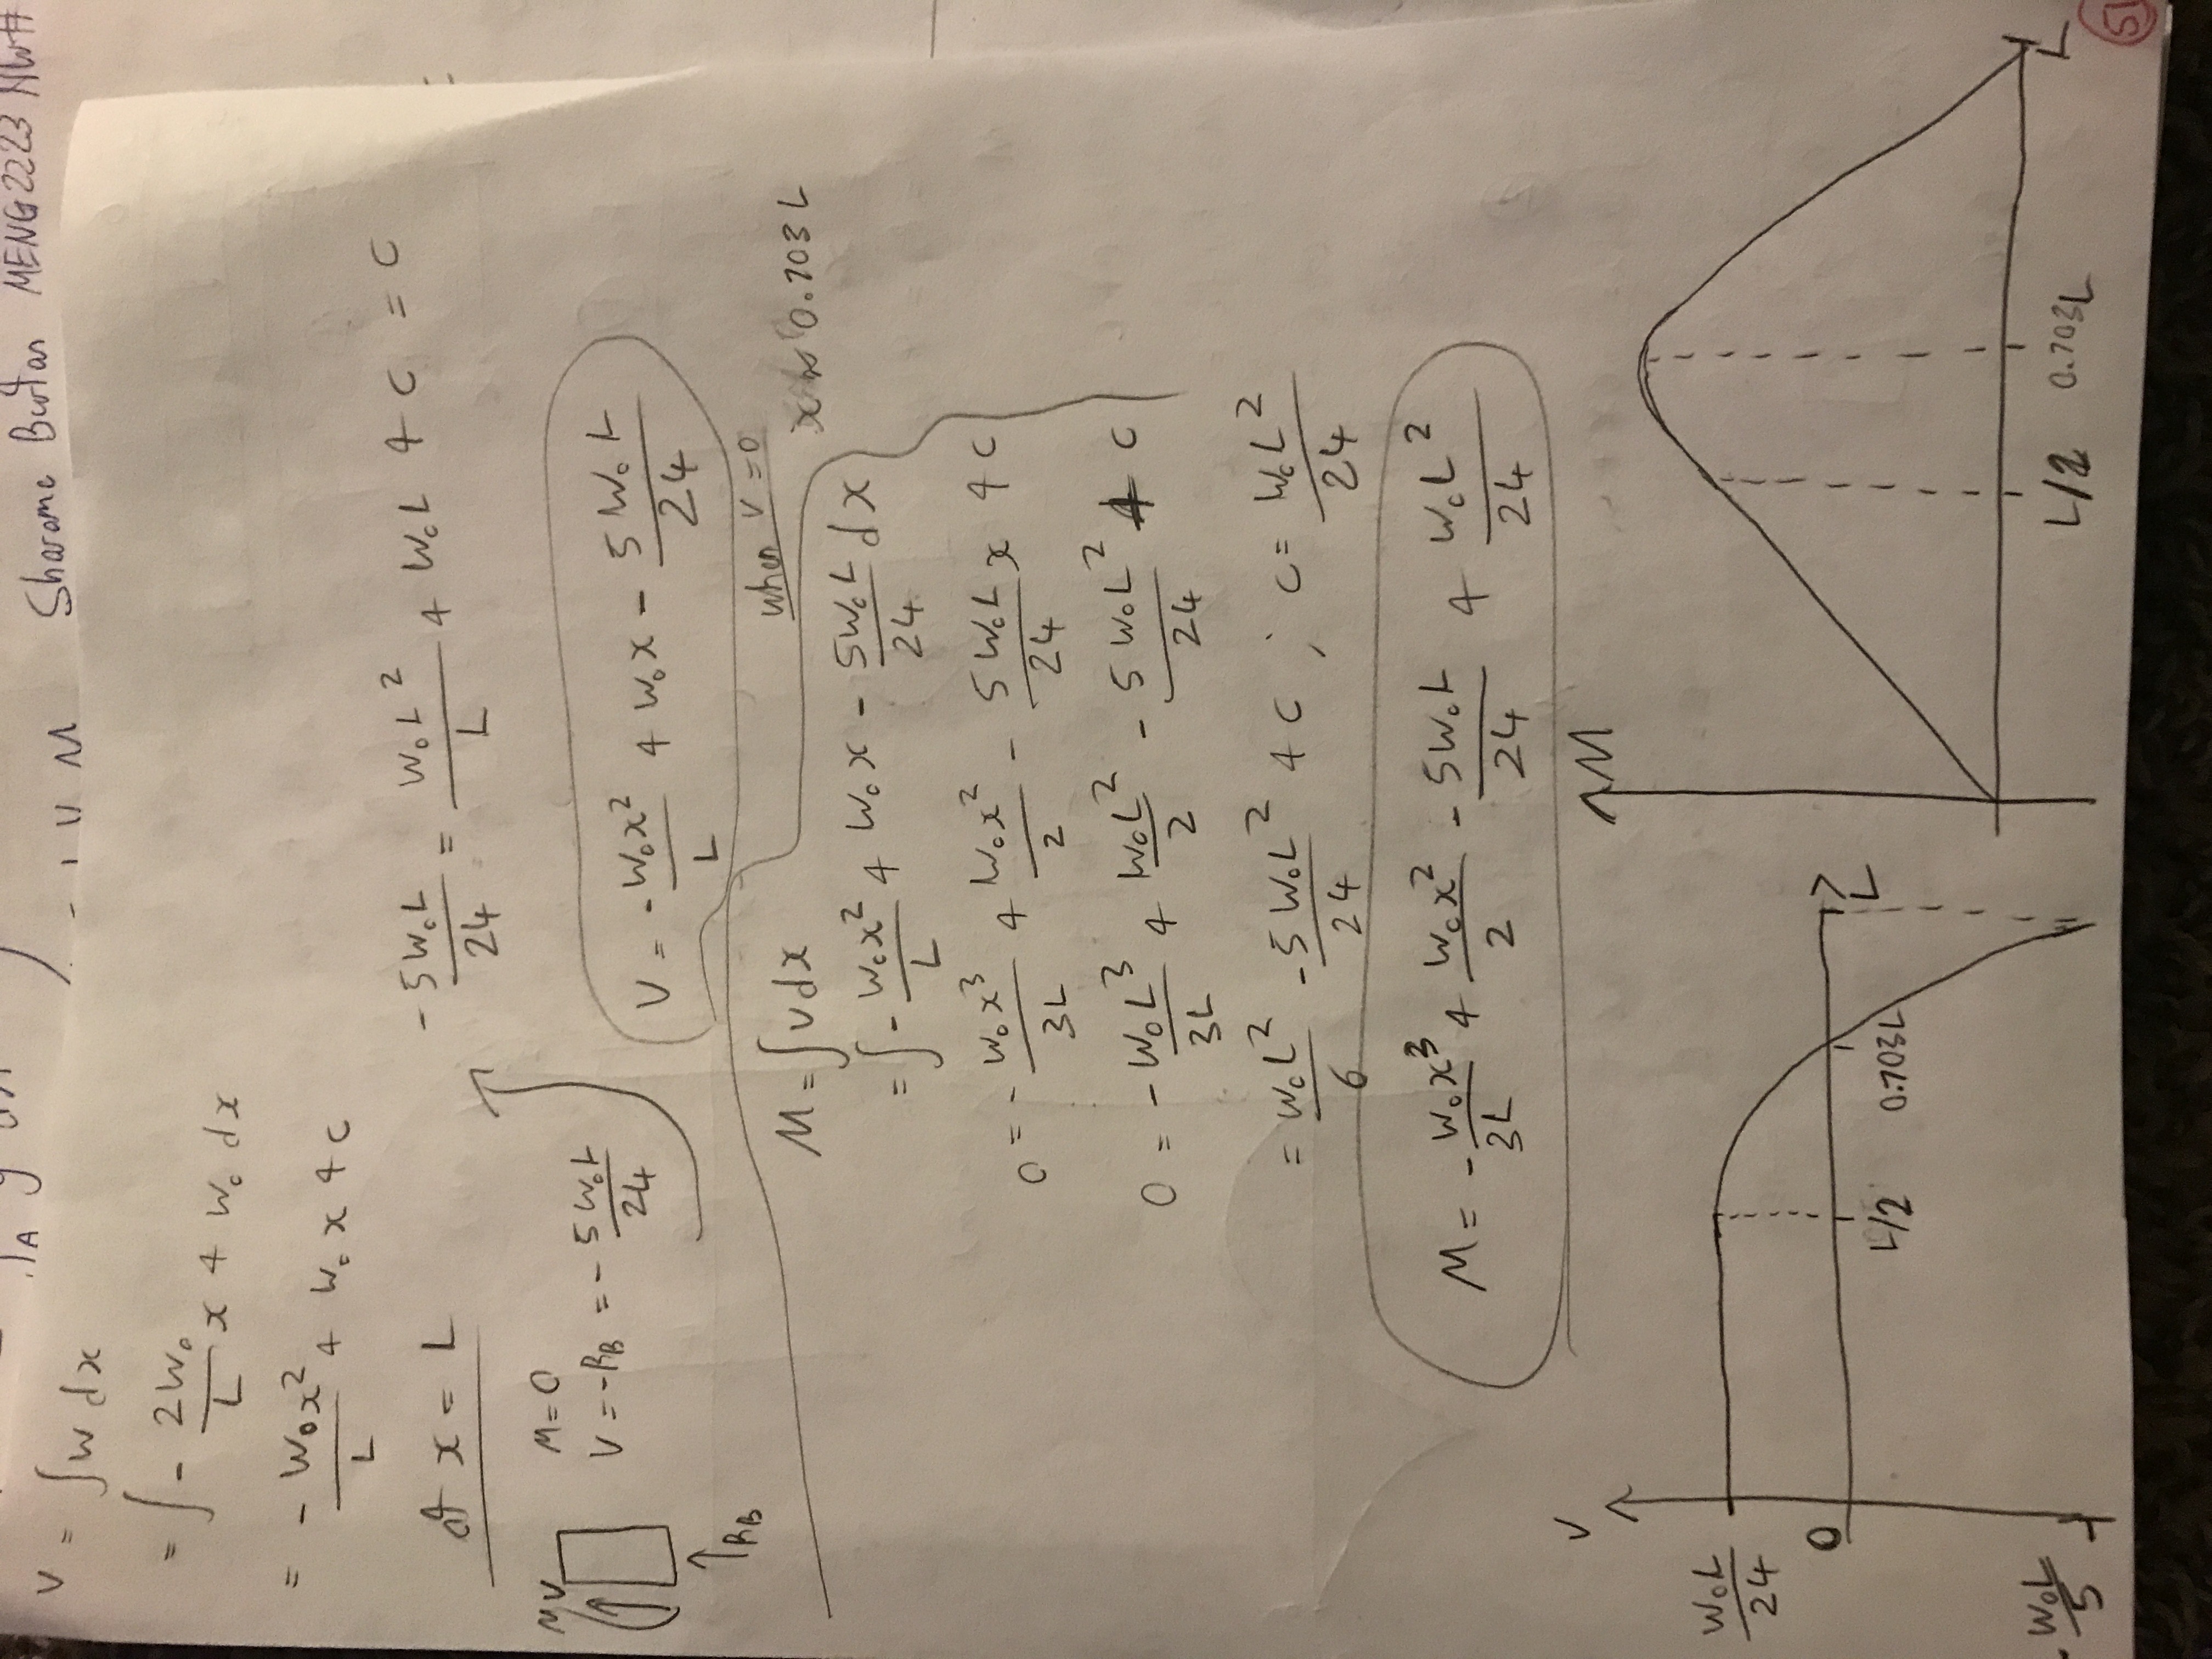 A y
M
Sharome Burton MENG2223 HW#
V = ∫w dx
= ∫ - 2W₀/L x + W₀ dx
= - W₀x²/L + W₀x + C
at x = L
M V
M = 0
V = -R_B = - 5W₀L/24
R_B
-5W₀L/24 = W₀L²/L + W₀L + C = C
V = - W₀x²/L + W₀x - 5W₀L/24
when V = 0
x ≈ 0.703L
M = ∫V dx
= ∫ - W₀x²/L + W₀x - 5W₀L/24 dx
0 = - W₀x³/3L + W₀x²/2 - 5W₀L/24 x + C
0 = - W₀L³/3L + W₀L²/2 - 5W₀L²/24 + C
= W₀L²/6 - 5W₀L²/24 + C ; C = W₀L²/24
M = - W₀x³/3L + W₀x²/2 - 5W₀L/24 + W₀L²/24
V
W₀L/24
0
L/2
0.703L
L
- W₀L/5
M
L/2
0.703L
L
51